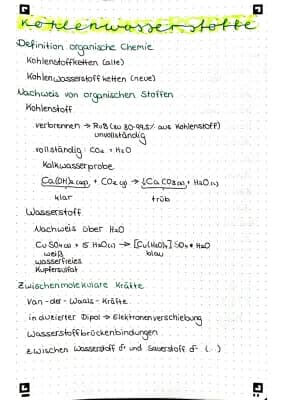 Kohlenwasserstoffe
Definition organische Chemie
Kohlenstoffketten (alte)
Kohlenwasserstoffketten (neue)
Nachweis von organischen Stoffen
Kohlenstoff
verbrennen → Ruß (zu 80-99,5% aus Kohlenstoff)
unvollständig
vollständig: CO₂ + H₂O
Kalkwasserprobe
Ca(OH)₂ (aq) + CO₂ (g) → CaCO₃ (s) + H₂O (l)
klar trüb
Wasserstoff
Nachweis über H₂O
CuSO₄ (s) + 5 H₂O (l) → [Cu(H₂O)₄]SO₄ • H₂O
weiß blau
wasserfreies
Kupfersulfat
Zwischenmolekulare Kräfte
Van-der-Waals-Kräfte
induzierter Dipol → Elektronenverschiebung
Wasserstoffbrückenbindungen
zwischen Wasserstoff δ⁺ und Sauerstoff δ⁻ (...)